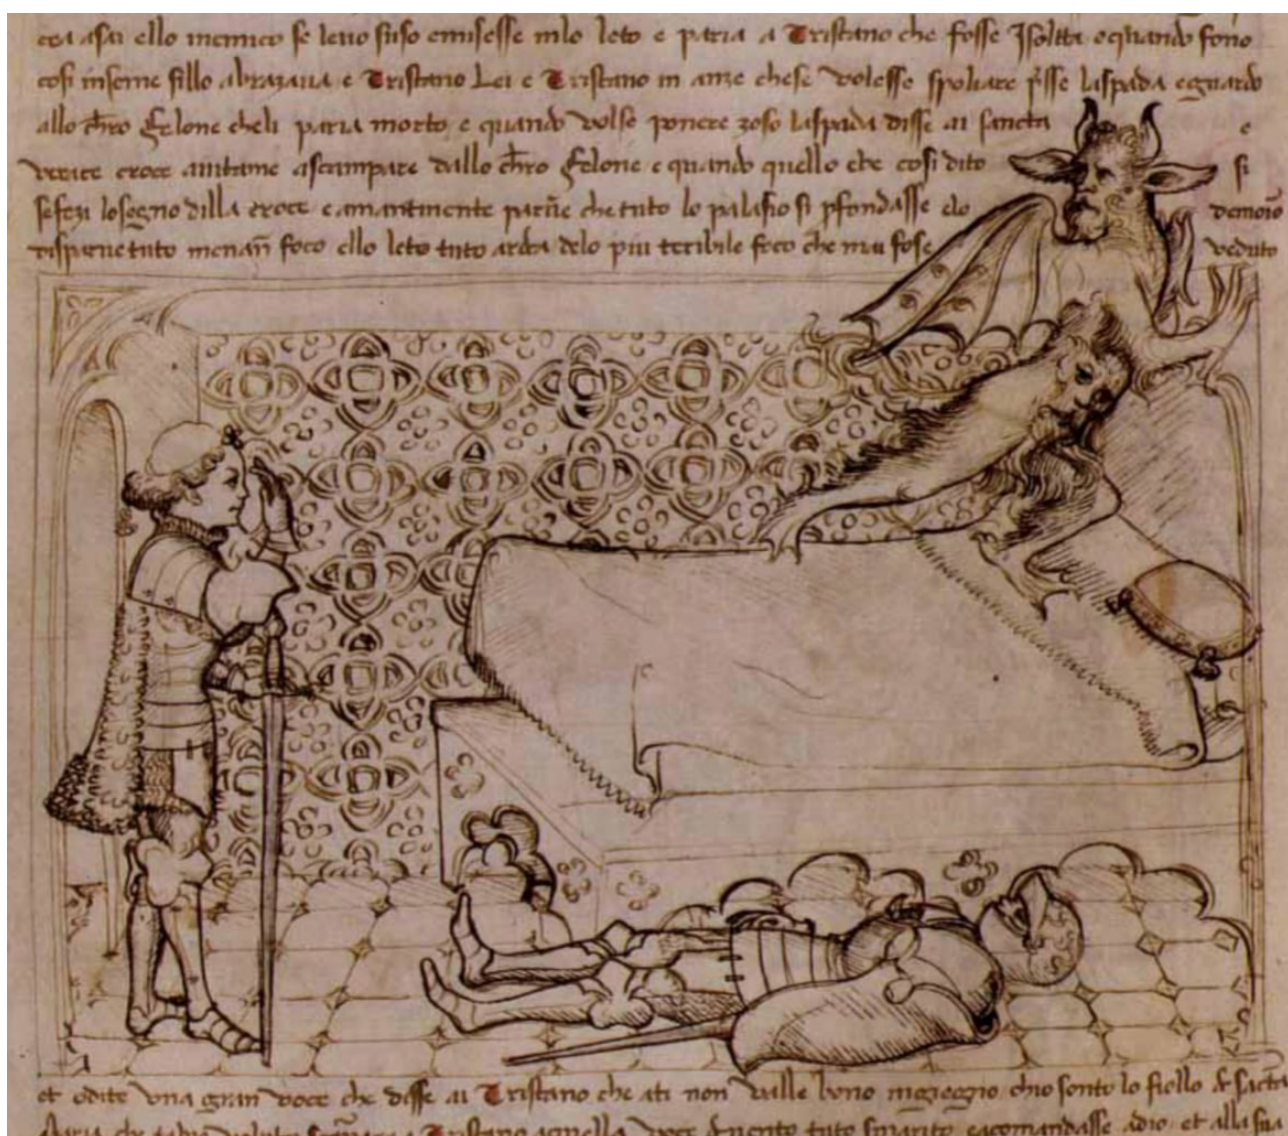 asai ello inemico se levo suso emisesse inlo leto e paria a Tristano che fosse Isolta equando fono
cosi inseme sillo abrazava e Tristano Lei e Tristano in anze chese volesse spoliare psse laspada eguardo
allo chro felone cheli paria morto e quando volse ponere zoso laspada disse ai sancta e
verace croce aiutame ascampare dallo chro felone e quando quello ebe cosi dito si
sefezi losegno dilla croce e amantinente parve che tuto lo palasio si pfondasse elo demoio
disparve tuto menan foco ello leto tuto ardea delo piu teribile foco che mai fose veduto
et odite una gran voce che disse ai Tristano che ati non valle bono chio sonto lo fiollo de sacta
Maria che Tristano aquella voce tuto smarito eacomandasse adio et alla sua